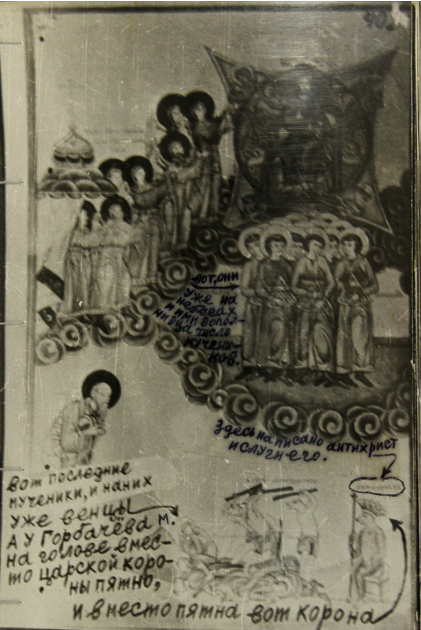 40.
вот, они
уже на
небесах
и ими допол-
нилось число
мучени-
ков.
Здесь написано антихрист
и слуги его.
вот последние
мученики, и на них
уже венцы
А у Горбачёва М.
на голове вмес-
то царской коро-
ны пятно,
и вместо пятна вот корона